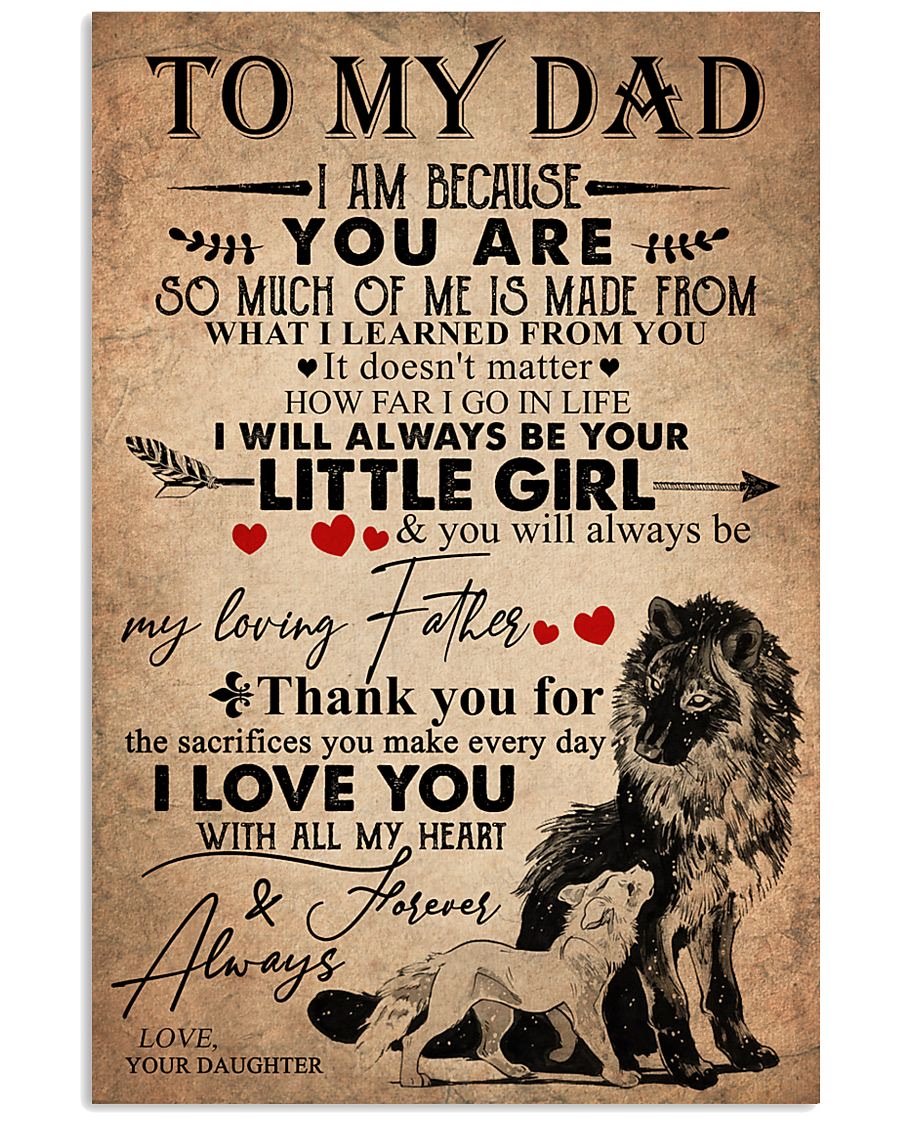 TO MY DAD
I AM BECAUSE
YOU ARE
SO MUCH OF ME IS MADE FROM
WHAT I LEARNED FROM YOU
It doesn't matter
HOW FAR I GO IN LIFE
I WILL ALWAYS BE YOUR
LITTLE GIRL
& you will always be
my loving Father
Thank you for
the sacrifices you make every day
I LOVE YOU
WITH ALL MY HEART
& Forever
Always
LOVE,
YOUR DAUGHTER